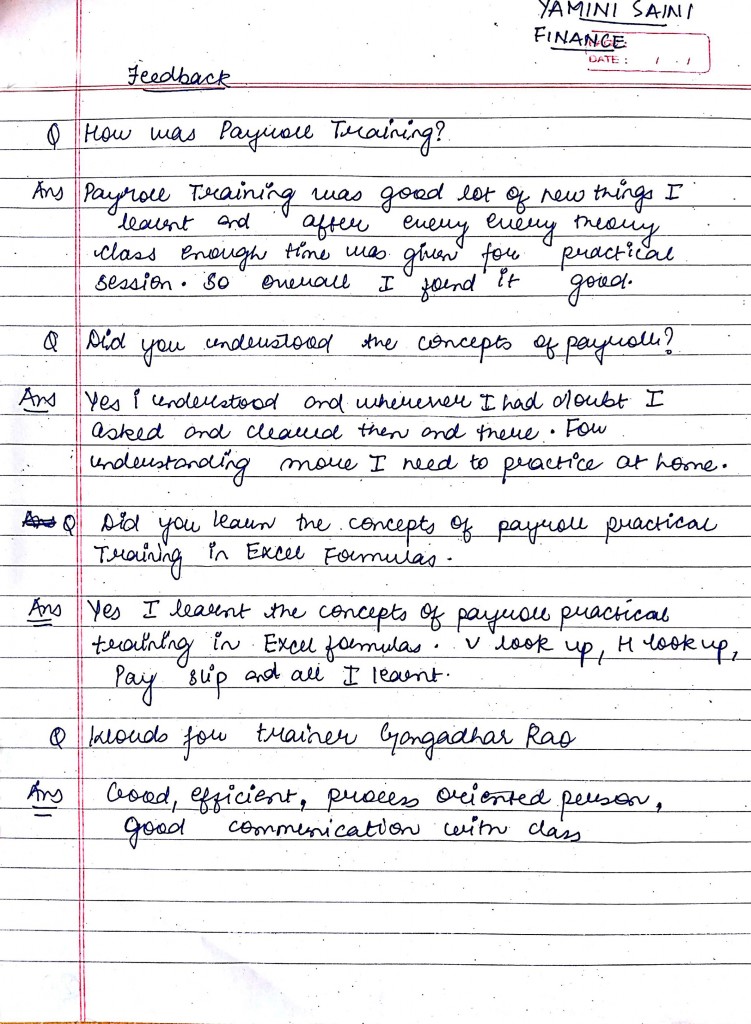 YAMINI SAINI
FINANCE
DATE : / /
Feedback
Q How was Payroll Training?
Ans Payroll Training was good lot of new things I
learnt and after every every theory
class enough time was given for practical
session. So overall I found it good.
Q Did you understood the concepts of payroll?
Ans Yes i understood and whenever I had doubt I
asked and cleared then and there. For
understanding more I need to practice at home.
Q Did you learn the concepts of payroll practical
Training in Excel Formulas.
Ans Yes I learnt the concepts of payroll practical
training in Excel formulas. V look up, H look up,
Pay slip and all I learnt.
Q Words for trainer Gangadhar Rao
Ans Good, efficient, process oriented person,
good communication with class